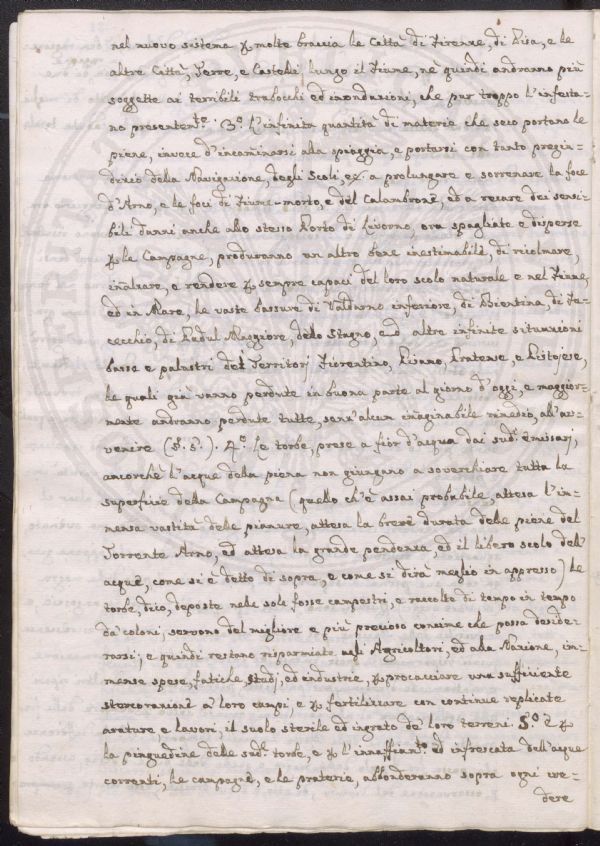 nel nuovo sistema p molte braccia le Città di Firenze, di Pisa, e le
altre Città, Terre, e Castelli lungo il Fiume, nè quindi andranno più
soggette ai terribili trabocchi ed inondazioni, che pur troppo l'infesta-
no presentem.te. 3.o L'infinita quantità di materie che seco portano le
piene, invece d'incaminarsi alla spiaggia, e portarsi con tanto pregiu-
dizio della Navigazione, degli Scoli, ec. a prolungare e sorrenare la foce
d'Arno, e le foci di Fiume-morto, e del Calambrone, ed a recare dei sensi-
bili danni anche allo stesso Porto di Livorno, ora spagliate e disperse
p le Campagne, produranno un altro bene inestimabile, di ricolmare,
inalzare, e rendere p sempre capaci del loro scolo naturale e nel Fiume,
ed in Mare, le vaste bassure di Valdarno inferiore, di Bientina, di Fu-
cecchio, di Padul Maggiore, dello Stagno, e d'altre infinite situazioni
basse e palustri dei Territorj Fiorentino, Pisano, Pratese, e Pistojese,
le quali già vanno perdute in buona parte al giorno d'oggi, e maggior-
mente andranno perdute tutte, senz'alcun imaginabile rimedio, all'av-
venire (§. 5.). 4.o Le torbe, prese a fior d'acqua dai sud.i emissarj,
ancorchè l'acque della piena non giungano a soverchiare tutta la
superficie della Campagna (quello ch'è assai probabile, attesa l'im-
mensa vastità delle pianure, attesa la breve durata delle piene del
Torrente Arno, ed attesa la grande pendenza ed il libero scolo dell'
acque, come si è detto di sopra, e come si dirà meglio in appresso) le
torbe, dico, deposte nelle sole fosse campestri, e raccolte di tempo in tempo
da' coloni, servono del migliore e più prezioso concime che possa deside-
rarsi, e quindi restano risparmiate agli Agricoltori, ed alla Nazione, im-
mense spese, fatiche, studj, ed industrie, p procacciare una sufficiente
stercorazione a' loro campi, e p fertilizzare con continue replicate
arature e lavori, il suolo sterile ed ingrato de' loro terreni. 5.o E p
la pinguedine delle sud.e torbe, e p l'innaffiam.to ed infrescata dell'acque
correnti, le campagne, e le praterie, abbonderanno sopra ogni cre-
dere